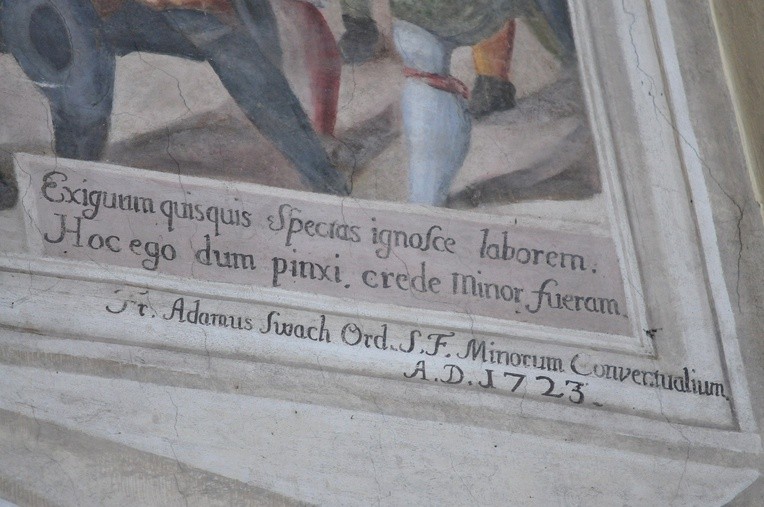 Exiguum quisquis ſpectas ignoſce laborem:
Hoc ego dum pinxi, crede minor fueram.
Fr. Adamus Swach Ord. S. F. Minorum Conventualium.
A. D. 1723.